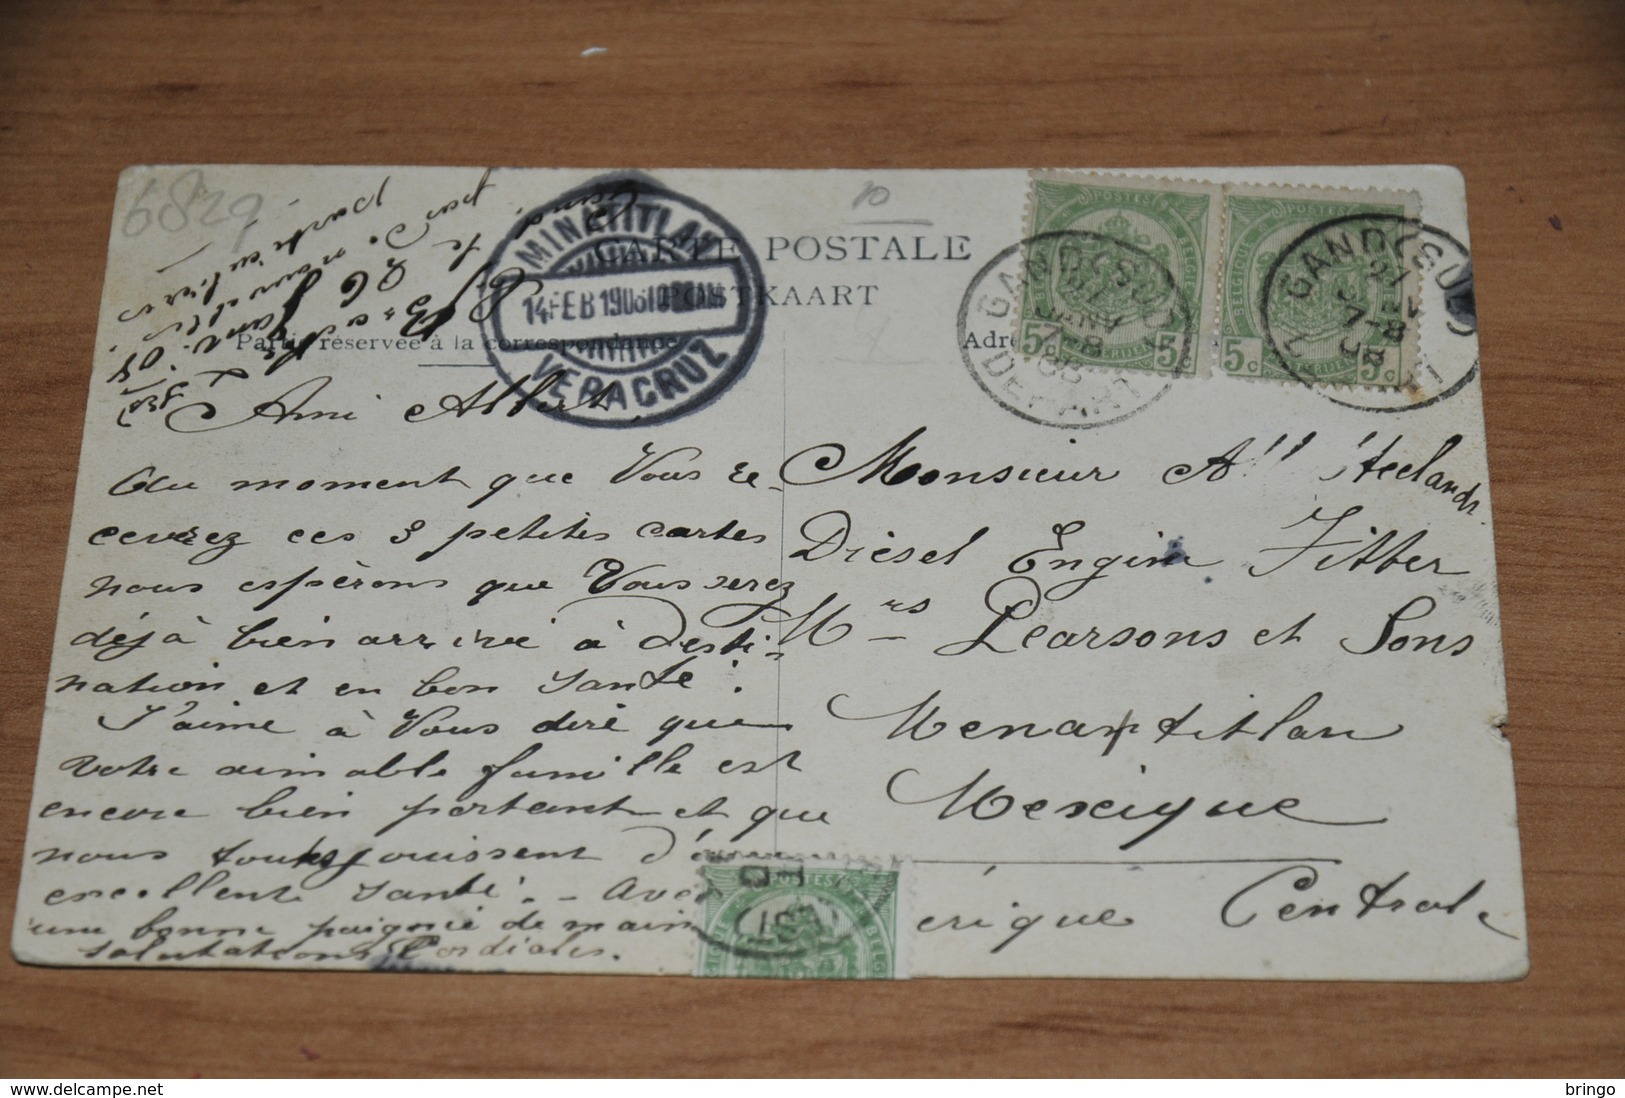 6829
CARTE POSTALE
POSTKAART
Partie réservée à la correspondance
MINATITLAN
14 FEB 1908
VERACRUZ
GAND (SUD)
DEPART
7-8
08
GAND (SUD)
21
7-8
08
POSTES
BELGIQUE
5c
5c
5c
5c
POSTES
Ami Albert,
Au moment que Vous re-
cevrez ces 3 petites cartes
nous espérons que Vous serez
déjà bien arrivé à desti-
nation et en bon santé.
J'aime à Vous dire que
votre aimable famille est
encore bien portant et que
nous tous jouissent d'
excellente santé. - Avec
une bonne poignié de main
salutations Cordiales.
Monsieur A
Diesel Engine Fitter
Mrs Pearsons et Sons
Menatitlan
Mexique
erique Centrale
bringo